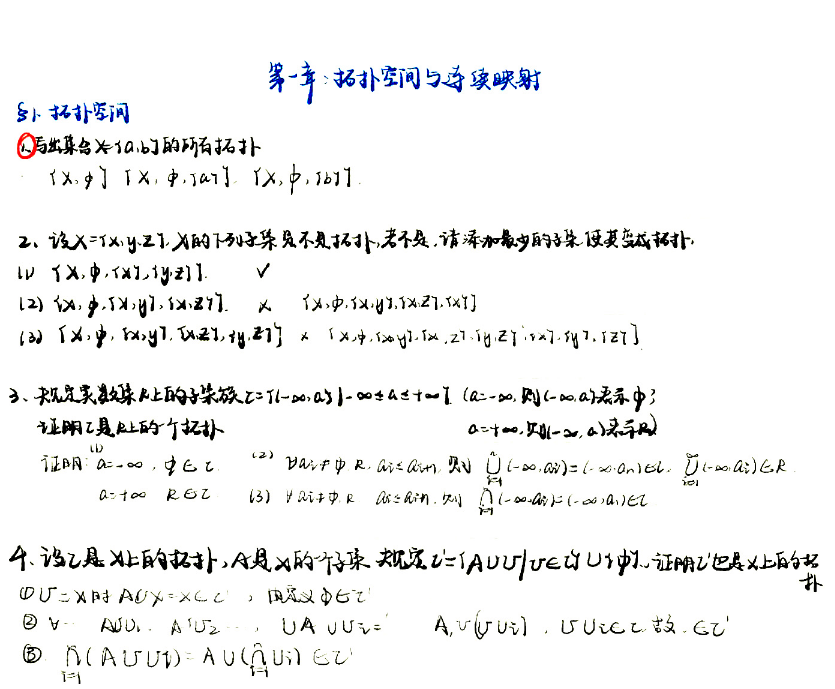 第一章：拓扑空间与连续映射
§1. 拓扑空间
1、写出集合X={a,b}的所有拓扑
{X,φ} {X, φ,{a}}. {X,φ,{b}}.
2、设X={x,y,z}, X的下列子集是不是拓扑,若不是,请添加最少的子集使其变成拓扑.
(1) {X,φ,{x},{y,z}}. ✓
(2) {X,φ,{x,y},{x,z}}. × {X,φ,{x,y},{x,z},{x}}
(3) {X,φ,{x,y},{x,z},{y,z}} × {X,φ,{x,y},{x,z},{y,z},{x},{y},{z}}
3、规定实数集R上的子集族τ={(-∞,a)|-∞≤a≤+∞}. (a=-∞,则(-∞,a)表示φ;
证明τ是R上的一个拓扑 a=+∞,则(-∞,a)表示R)
证明: (1) a=-∞, φ∈τ. (2) ∀ai≠φ,R, ai≤ai+1, 则 ⋃(-∞,ai)=(-∞,an)∈τ, ⋃(-∞,ai)∈R
a=+∞ R∈τ (3) ∀ai≠φ,R ai≤ai+1, 则 ⋂(-∞,ai)=(-∞,a1)∈τ
4、设τ是X上的拓扑,A是X的一个子集 规定τ'={A∪U|U∈τ}∪{φ}. 证明τ'也是X上的拓扑
① U=X时 A∪X=X∈τ', 由定义φ∈τ'
② ∀ A∪U1, A∪U2 …, ∪A∪Ui= A∪(∪Ui), ∪Ui∈τ 故 ∈τ'
③ ⋂(A∪Ui)=A∪(⋂Ui)∈τ'